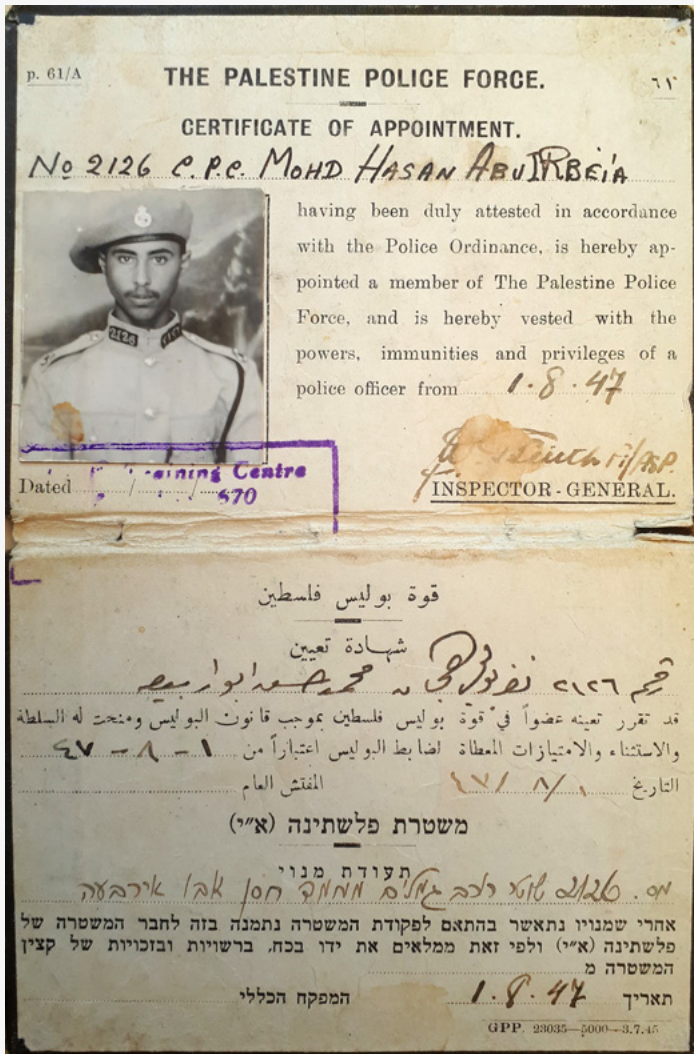 p. 61/A
THE PALESTINE POLICE FORCE.
٦١
CERTIFICATE OF APPOINTMENT.
No 2126 C.P.C. MOHD HASAN ABU IRBEIA
having been duly attested in accordance
with the Police Ordinance, is hereby ap-
pointed a member of The Palestine Police
Force, and is hereby vested with the
powers, immunities and privileges of a
police officer from 1.8.47
2126
Centre
Dated / /
670
INSPECTOR-GENERAL.
قوة بوليس فلسطين
شهادة تعيين
٢١٢٦ نفر محمد حسن ابو اربيعه
قد تقرر تعينه عضواً في قوة بوليس فلسطين بموجب قانون البوليس ومنحت له السلطة
والاستثناء والامتيازات المعطاة لضابط البوليس اعتباراً من ١ - ٨ - ٤٧
التاريخ ١/٨/٤٧ المفتش العام
משטרת פלשתינה (א״י)
תעודת מנוי
מס. 2126 שוטר רוכב גמלים מחמד חסן אבו אירבעה
אחרי שמנויו נתאשר בהתאם לפקודת המשטרה נתמנה בזה לחבר המשטרה של
פלשתינה (א״י) ולפי זאת ממלאים את ידו בכח, ברשויות ובזכויות של קצין
המשטרה מ
תאריך 1.8.47 המפקח הכללי
GPP. 23035—5000—3.7.45